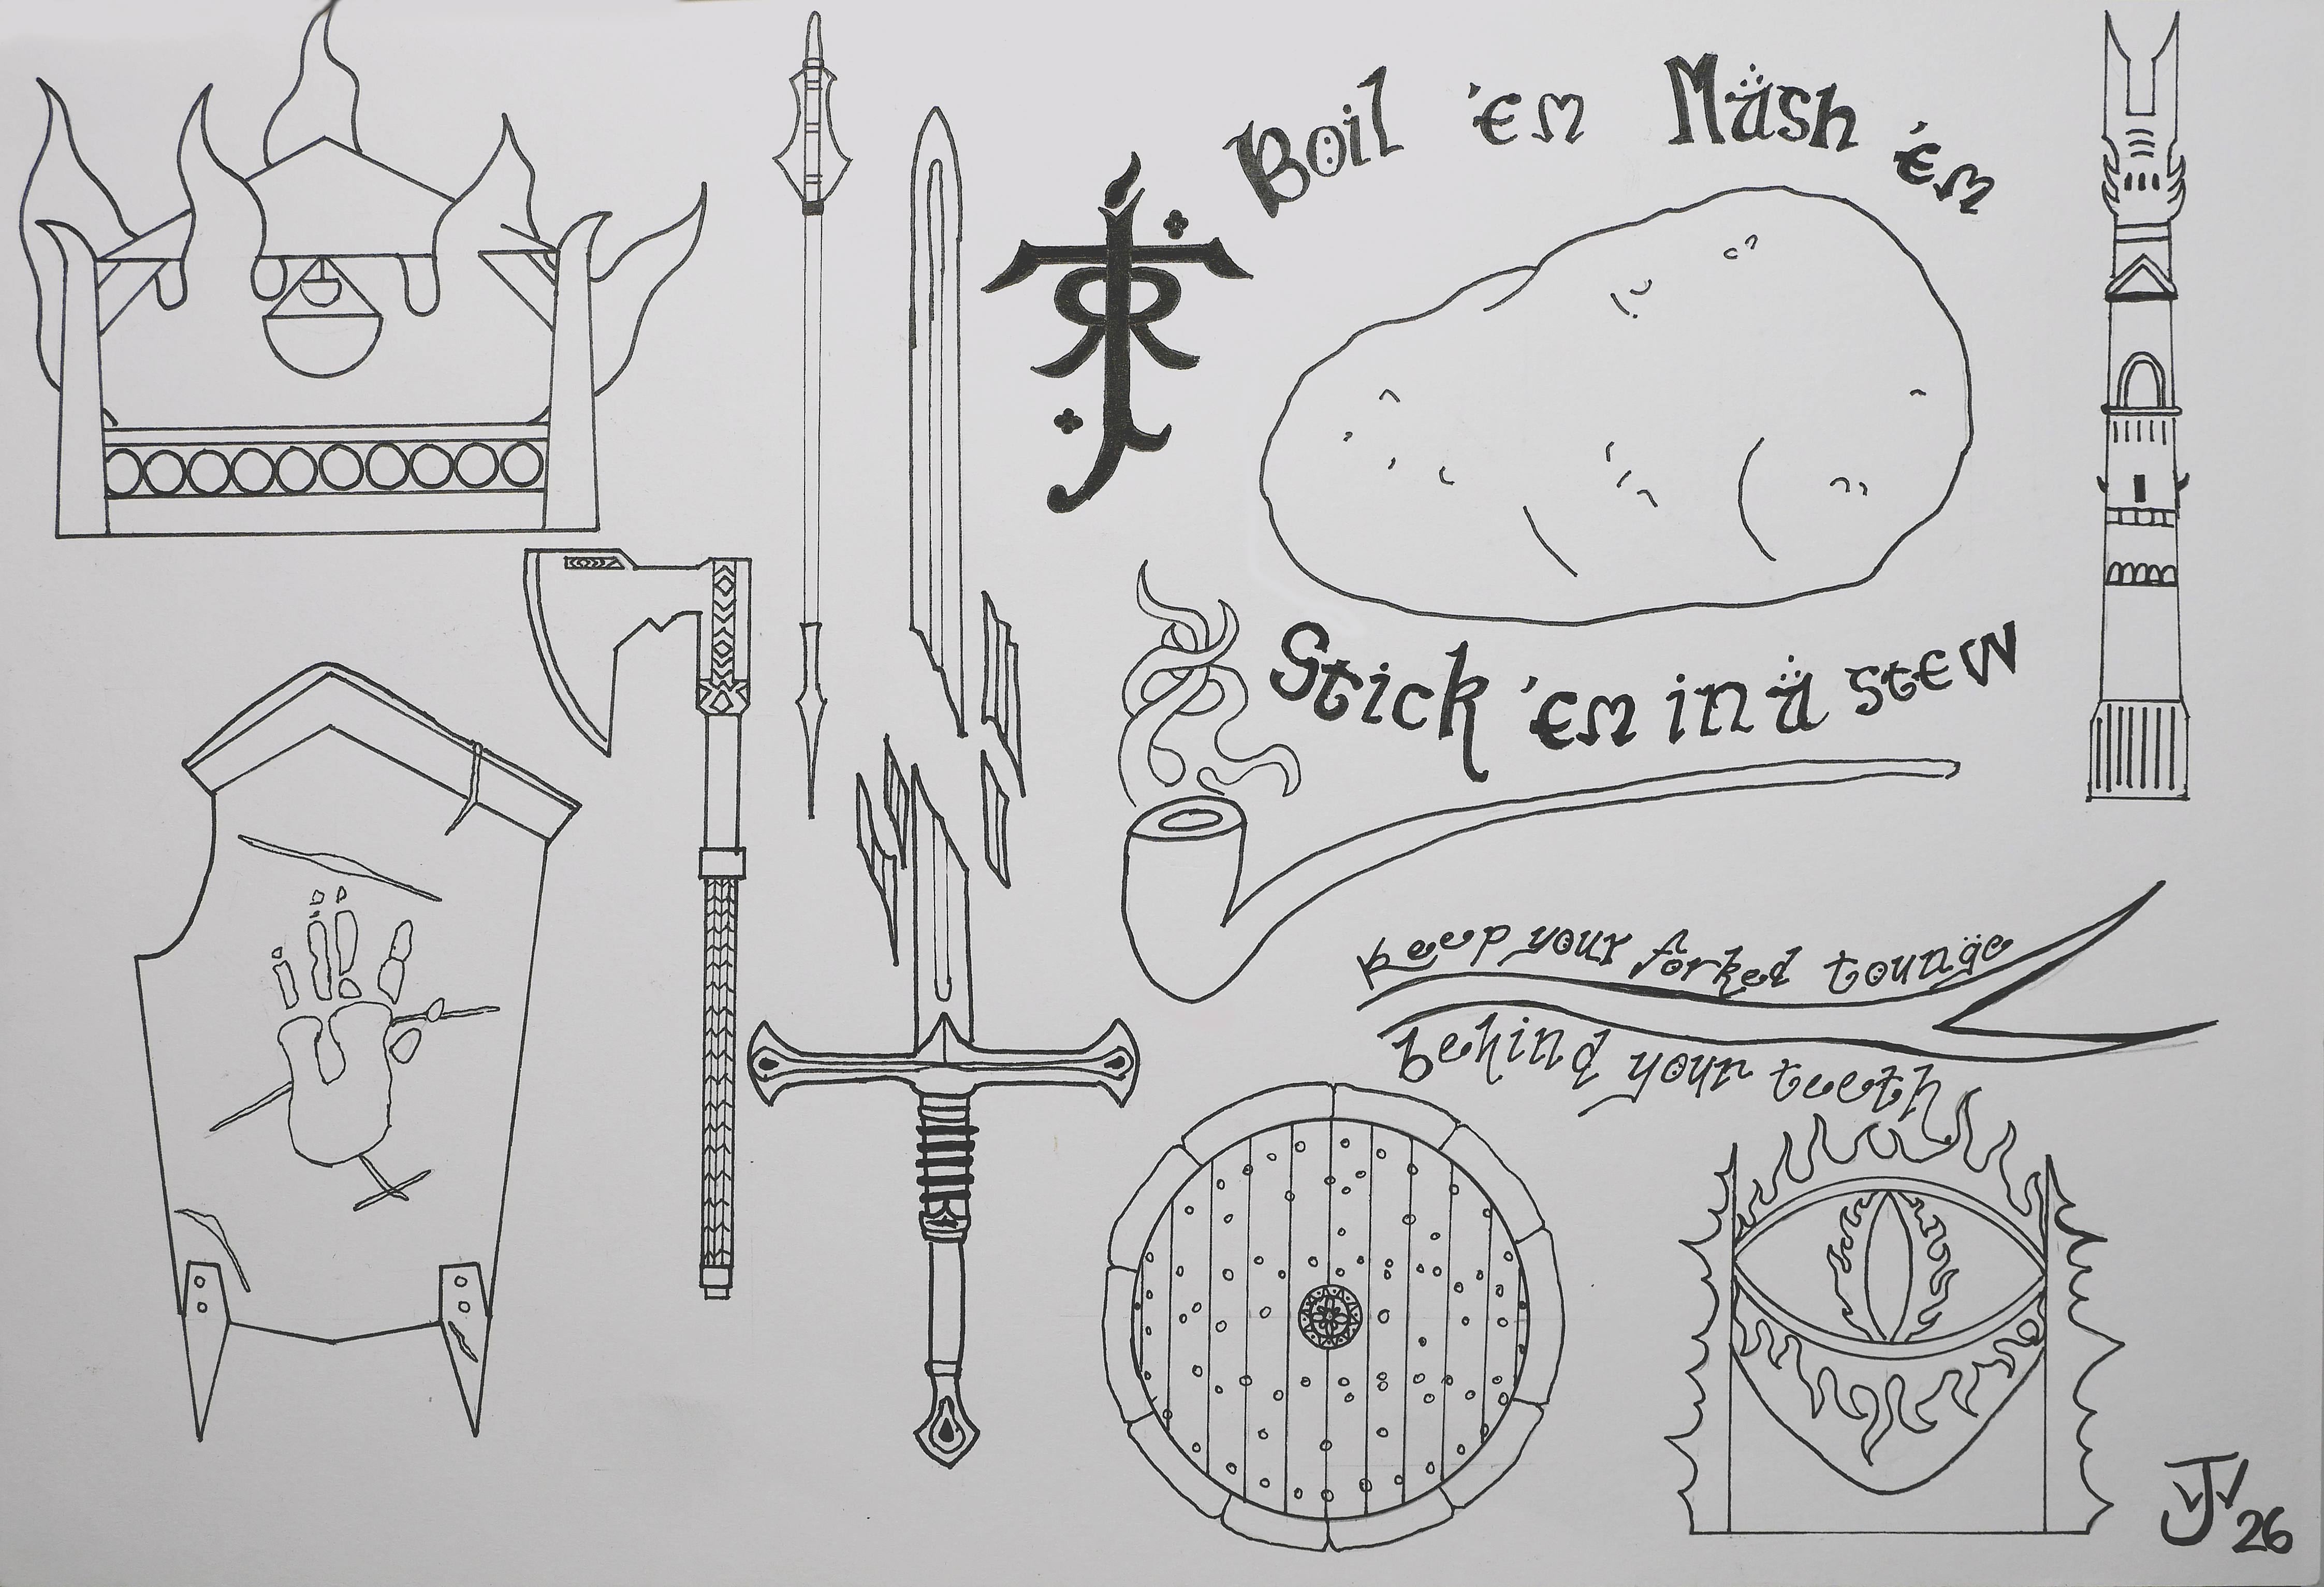 Boil 'em Mash 'em
Stick 'em in a stew
keep your forked tounge
behind your teeth
JV 26